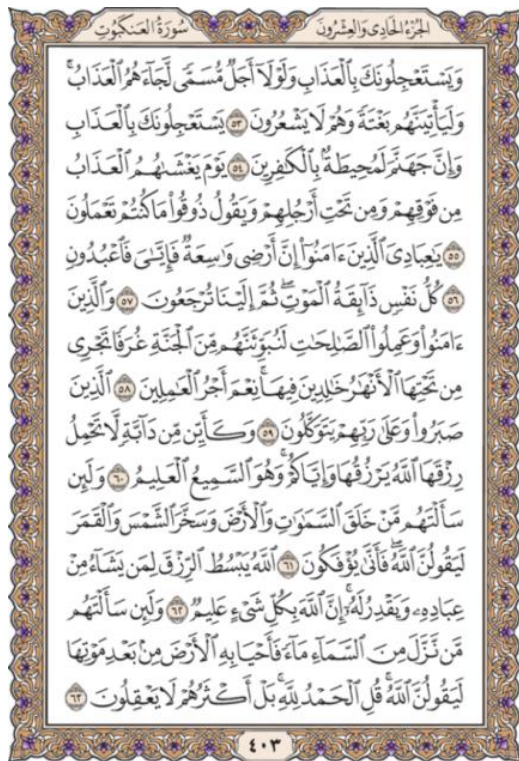 الجُزْءُ الحَادِى وَالعِشْرُونَ
سُورَةُ العَنكَبُوتِ
وَيَسْتَعْجِلُونَكَ بِالْعَذَابِ وَلَوْلَآ أَجَلٌ مُّسَمًّى لَّجَآءَهُمُ الْعَذَابُ ۚ
وَلَيَأْتِيَنَّهُم بَغْتَةً وَهُمْ لَا يَشْعُرُونَ ٥٣ يَسْتَعْجِلُونَكَ بِالْعَذَابِ
وَإِنَّ جَهَنَّمَ لَمُحِيطَةٌۢ بِالْكَٰفِرِينَ ٥٤ يَوْمَ يَغْشَىٰهُمُ الْعَذَابُ
مِن فَوْقِهِمْ وَمِن تَحْتِ أَرْجُلِهِمْ وَيَقُولُ ذُوقُوا۟ مَا كُنتُمْ تَعْمَلُونَ
٥٥ يَٰعِبَادِىَ الَّذِينَ ءَامَنُوٓا۟ إِنَّ أَرْضِى وَٰسِعَةٌ فَإِيَّٰىَ فَاعْبُدُونِ
٥٦ كُلُّ نَفْسٍ ذَآئِقَةُ الْمَوْتِ ۖ ثُمَّ إِلَيْنَا تُرْجَعُونَ ٥٧ وَالَّذِينَ
ءَامَنُوا۟ وَعَمِلُوا۟ الصَّٰلِحَٰتِ لَنُبَوِّئَنَّهُم مِّنَ الْجَنَّةِ غُرَفًا تَجْرِى
مِن تَحْتِهَا الْأَنْهَٰرُ خَٰلِدِينَ فِيهَا ۚ نِعْمَ أَجْرُ الْعَٰمِلِينَ ٥٨ الَّذِينَ
صَبَرُوا۟ وَعَلَىٰ رَبِّهِمْ يَتَوَكَّلُونَ ٥٩ وَكَأَيِّن مِّن دَآبَّةٍ لَّا تَحْمِلُ
رِزْقَهَا اللَّهُ يَرْزُقُهَا وَإِيَّاكُمْ ۚ وَهُوَ السَّمِيعُ الْعَلِيمُ ٦٠ وَلَئِن
سَأَلْتَهُم مَّنْ خَلَقَ السَّمَٰوَٰتِ وَالْأَرْضَ وَسَخَّرَ الشَّمْسَ وَالْقَمَرَ
لَيَقُولُنَّ اللَّهُ ۖ فَأَنَّىٰ يُؤْفَكُونَ ٦١ اللَّهُ يَبْسُطُ الرِّزْقَ لِمَن يَشَآءُ مِنْ
عِبَادِهِۦ وَيَقْدِرُ لَهُۥٓ ۚ إِنَّ اللَّهَ بِكُلِّ شَىْءٍ عَلِيمٌ ٦٢ وَلَئِن سَأَلْتَهُم
مَّن نَّزَّلَ مِنَ السَّمَآءِ مَآءً فَأَحْيَا بِهِ الْأَرْضَ مِنۢ بَعْدِ مَوْتِهَا
لَيَقُولُنَّ اللَّهُ ۚ قُلِ الْحَمْدُ لِلَّهِ ۚ بَلْ أَكْثَرُهُمْ لَا يَعْقِلُونَ ٦٣
٤٠٣